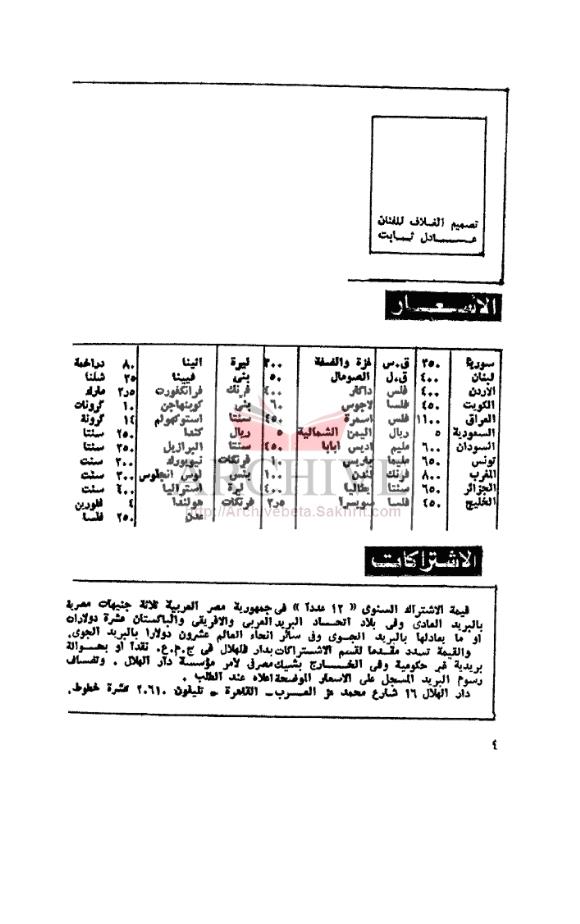 تصميم الغلاف للفنان
عــادل ثــابت
الأسعار
سوريا ٣٥٠ ق.س غزة والضفة ٣٠٠ ليرة اثينا ٨٠ دراخمة
لبنان ٤٠٠ ق.ل الصومال ٥٠ بنى فيينا ٣٥ شلنا
الأردن ٤٠٠ فلس داكار ٤٠٠ فرنك فرانكفورت ٣٫٥ مارك
الكويت ٤٥٠ فلسا لاجوس ٦٠ بنى كوبنهاجن ١٠ كرونات
العراق ١١٠٠ فلس اسمرة ٤٥٠ سنتا استوكهولم ١٤ كرونة
السعودية ٥ ريال اليمن الشمالية ٥ ريال كندا ٢٥٠ سنتا
السودان ٦٠٠ مليم اديس ابابا ٤٥٠ سنتا البرازيل ٣٥٠ سنتا
تونس ٦٥٠ مليما باريس ١٠ فرنكات نيويورك ٣٠٠ سنت
المغرب ٨٠٠ فرنك لندن ١٠٠ بنس لوس انجلوس ٣٠٠ سنت
الجزائر ٦٥٠ سنتا ايطاليا ٤٠٠ ليرة استراليا ٤٠٠ سنت
الخليج ٤٥٠ فلسا سويسرا ٣٫٥ فرنكات هولندا ٤ فلورين
عدن ٢٥٠ فلسا
ARCHIVE
http://Archivebeta.Sakhrit.com
الاشتراكات
قيمة الاشتراك السنوى « ١٢ عددا » فى جمهورية مصر العربية ثلاثة جنيهات مصرية
بالبريد العادى وفى بلاد اتحـاد البريد العربى والافريقى والباكستان عشرة دولارات
او ما يعادلها بالبريد الجـوى وفى سائر انحاء العالم عشرون دولارا بالبريد الجوى.
والقيمة تسدد مقدما لقسم الاشتراكات بدار الهلال فى ج.م.ع. نقدا او بحـوالة
بريدية غير حكومية وفى الخـارج بشيك مصرفى لامر مؤسسة دار الهلال . وتضاف
رسوم البريد المسجل على الاسعار الموضحة اعلاه عند الطلب .
دار الهلال ١٦ شارع محمد عز العـرب ــ القاهرة ــ تليفون ٢٠٦١٠ عشرة خطوط.
٤